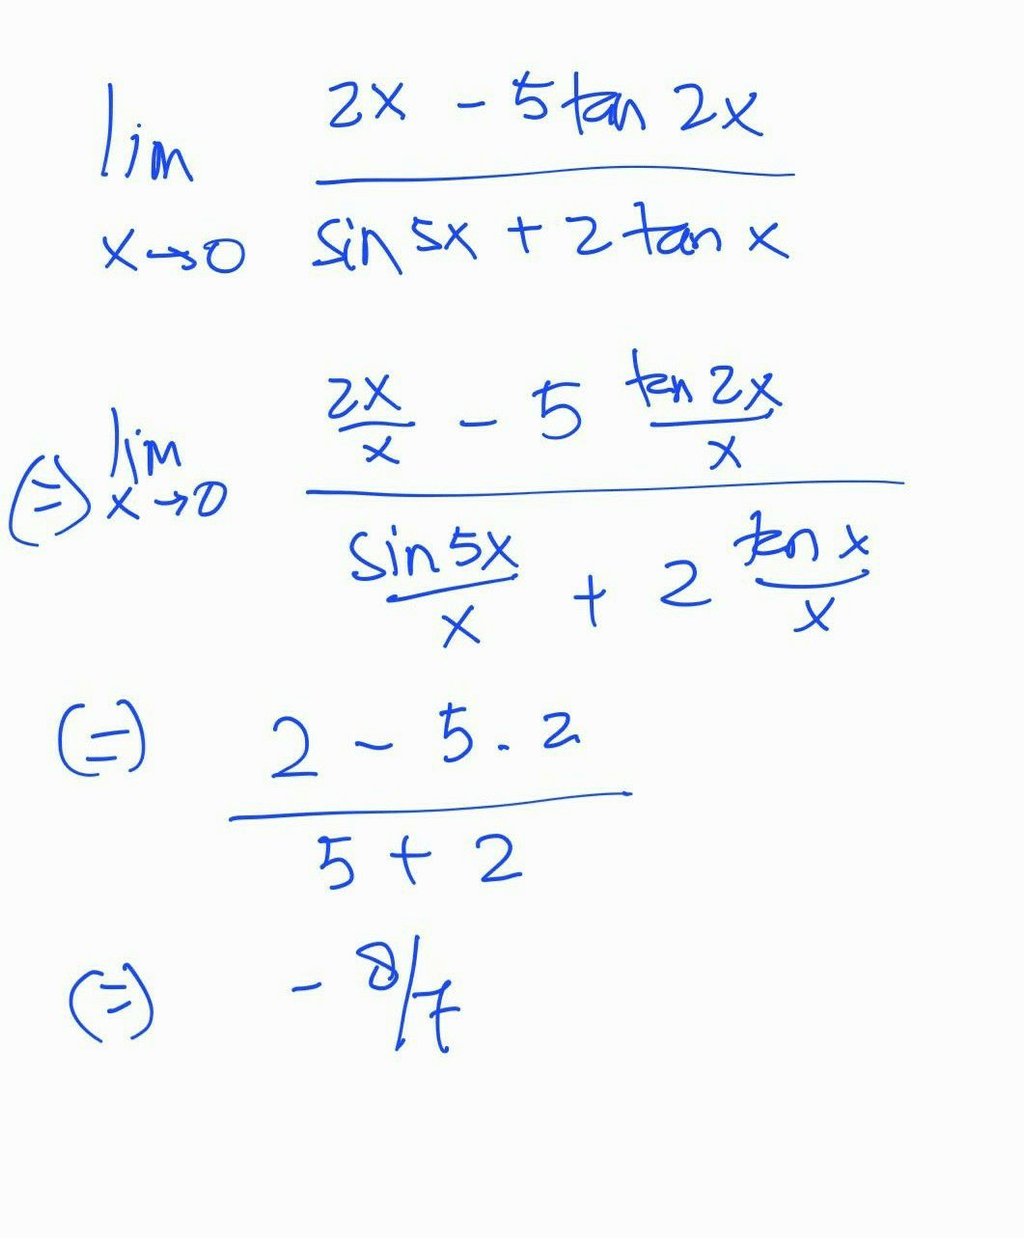 lim x→0 (2x - 5 tan 2x) / (sin 5x + 2 tan x)
(=) lim x→0 (2x/x - 5 tan 2x/x) / (sin 5x/x + 2 tan x/x)
(=) (2 - 5 . 2) / (5 + 2)
(=) - 8/7